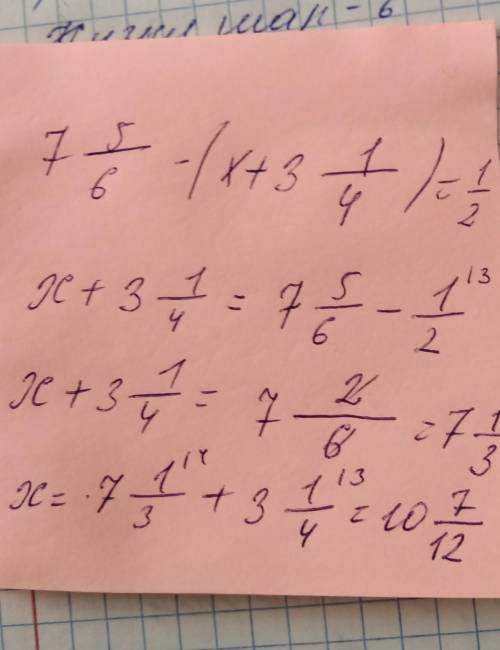 7 5/6 - (x + 3 1/4) = 1/2
x + 3 1/4 = 7 5/6 - 1/2 13
x + 3 1/4 = 7 2/6 = 7 1/3
x = 7 1/3 14 + 3 1/4 13 = 10 7/12